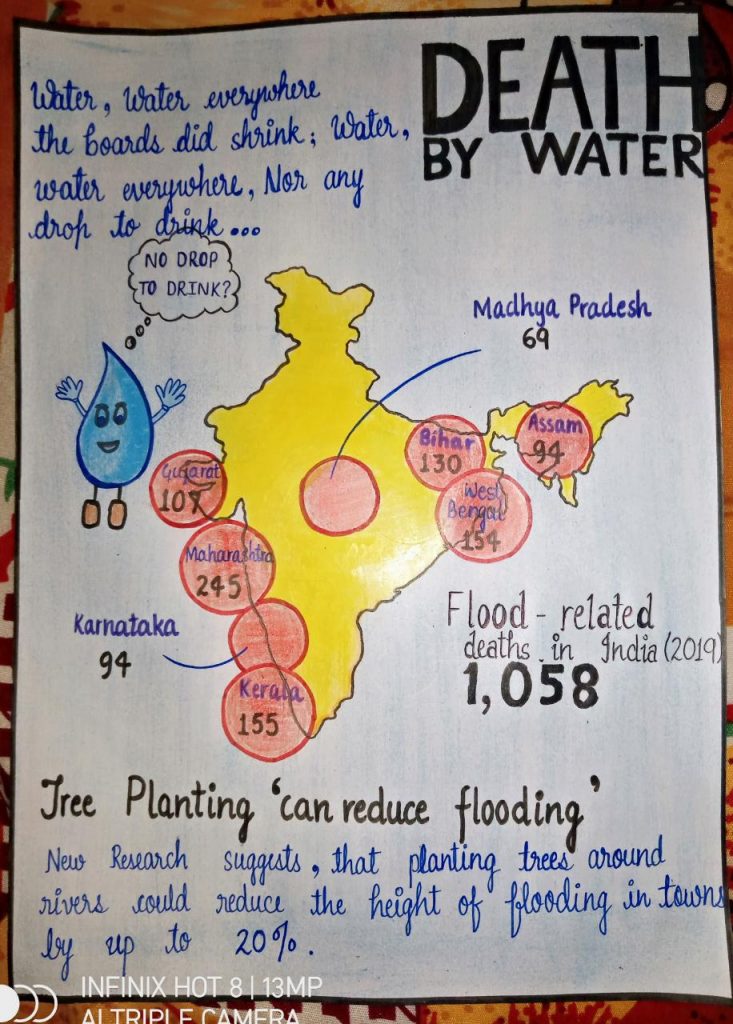 Water, Water everywhere
the boards did shrink; Water,
water everywhere, Nor any
drop to drink...
DEATH
BY WATER
NO DROP
TO DRINK?
Madhya Pradesh
69
Bihar
130
Assam
94
Gujarat
107
West
Bengal
154
Maharashtra
245
Karnataka
94
Kerala
155
Flood - related
deaths in India (2019)
1,058
Tree Planting 'can reduce flooding'
New Research suggests, that planting trees around
rivers could reduce the height of flooding in towns
by up to 20%.
INFINIX HOT 8 | 13MP
AI TRIPLE CAMERA